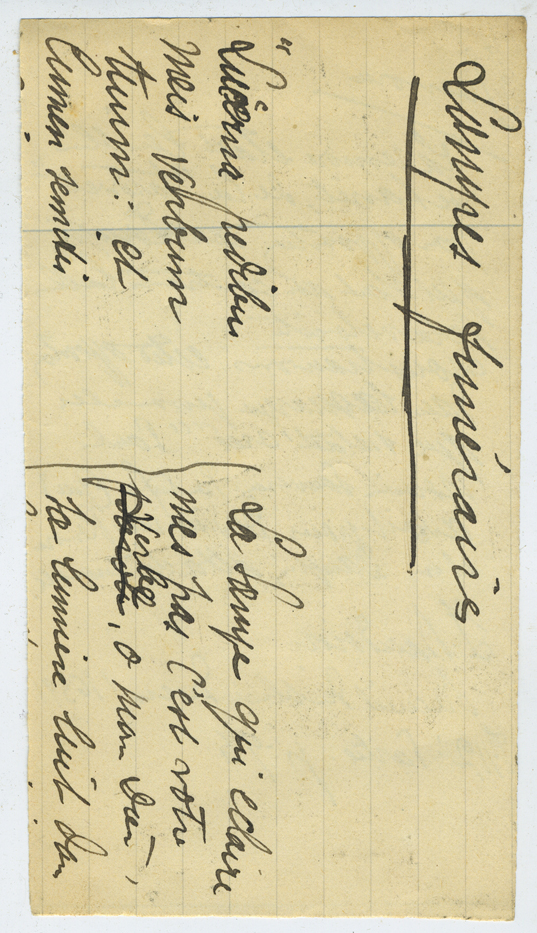 Lampes funéraires
"Lucerna pedibus
meis verbum
tuum: et
lumen semitis
La lampe qui eclaire
mes pas c'est votre
Verbe, o mon Dieu,
ta lumiere luit dan